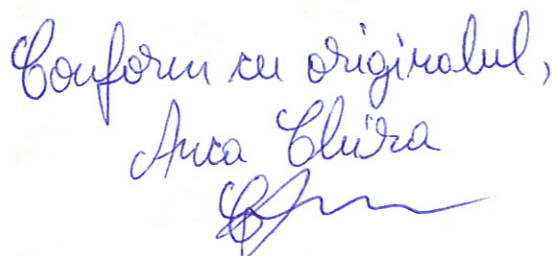 Conform cu originalul,
Anca Chira